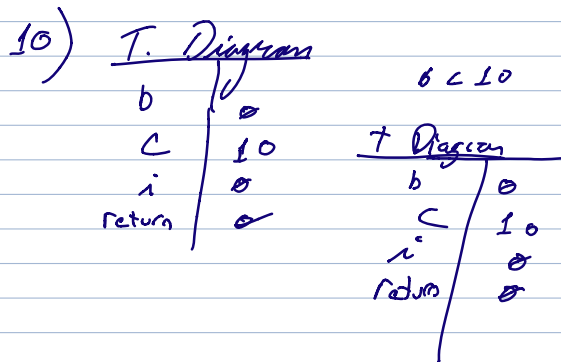 10) T. Diagram
b 0
C 10
i 0
return 0
b < 10
T Diagram
b 0
C 10
i 0
return 0